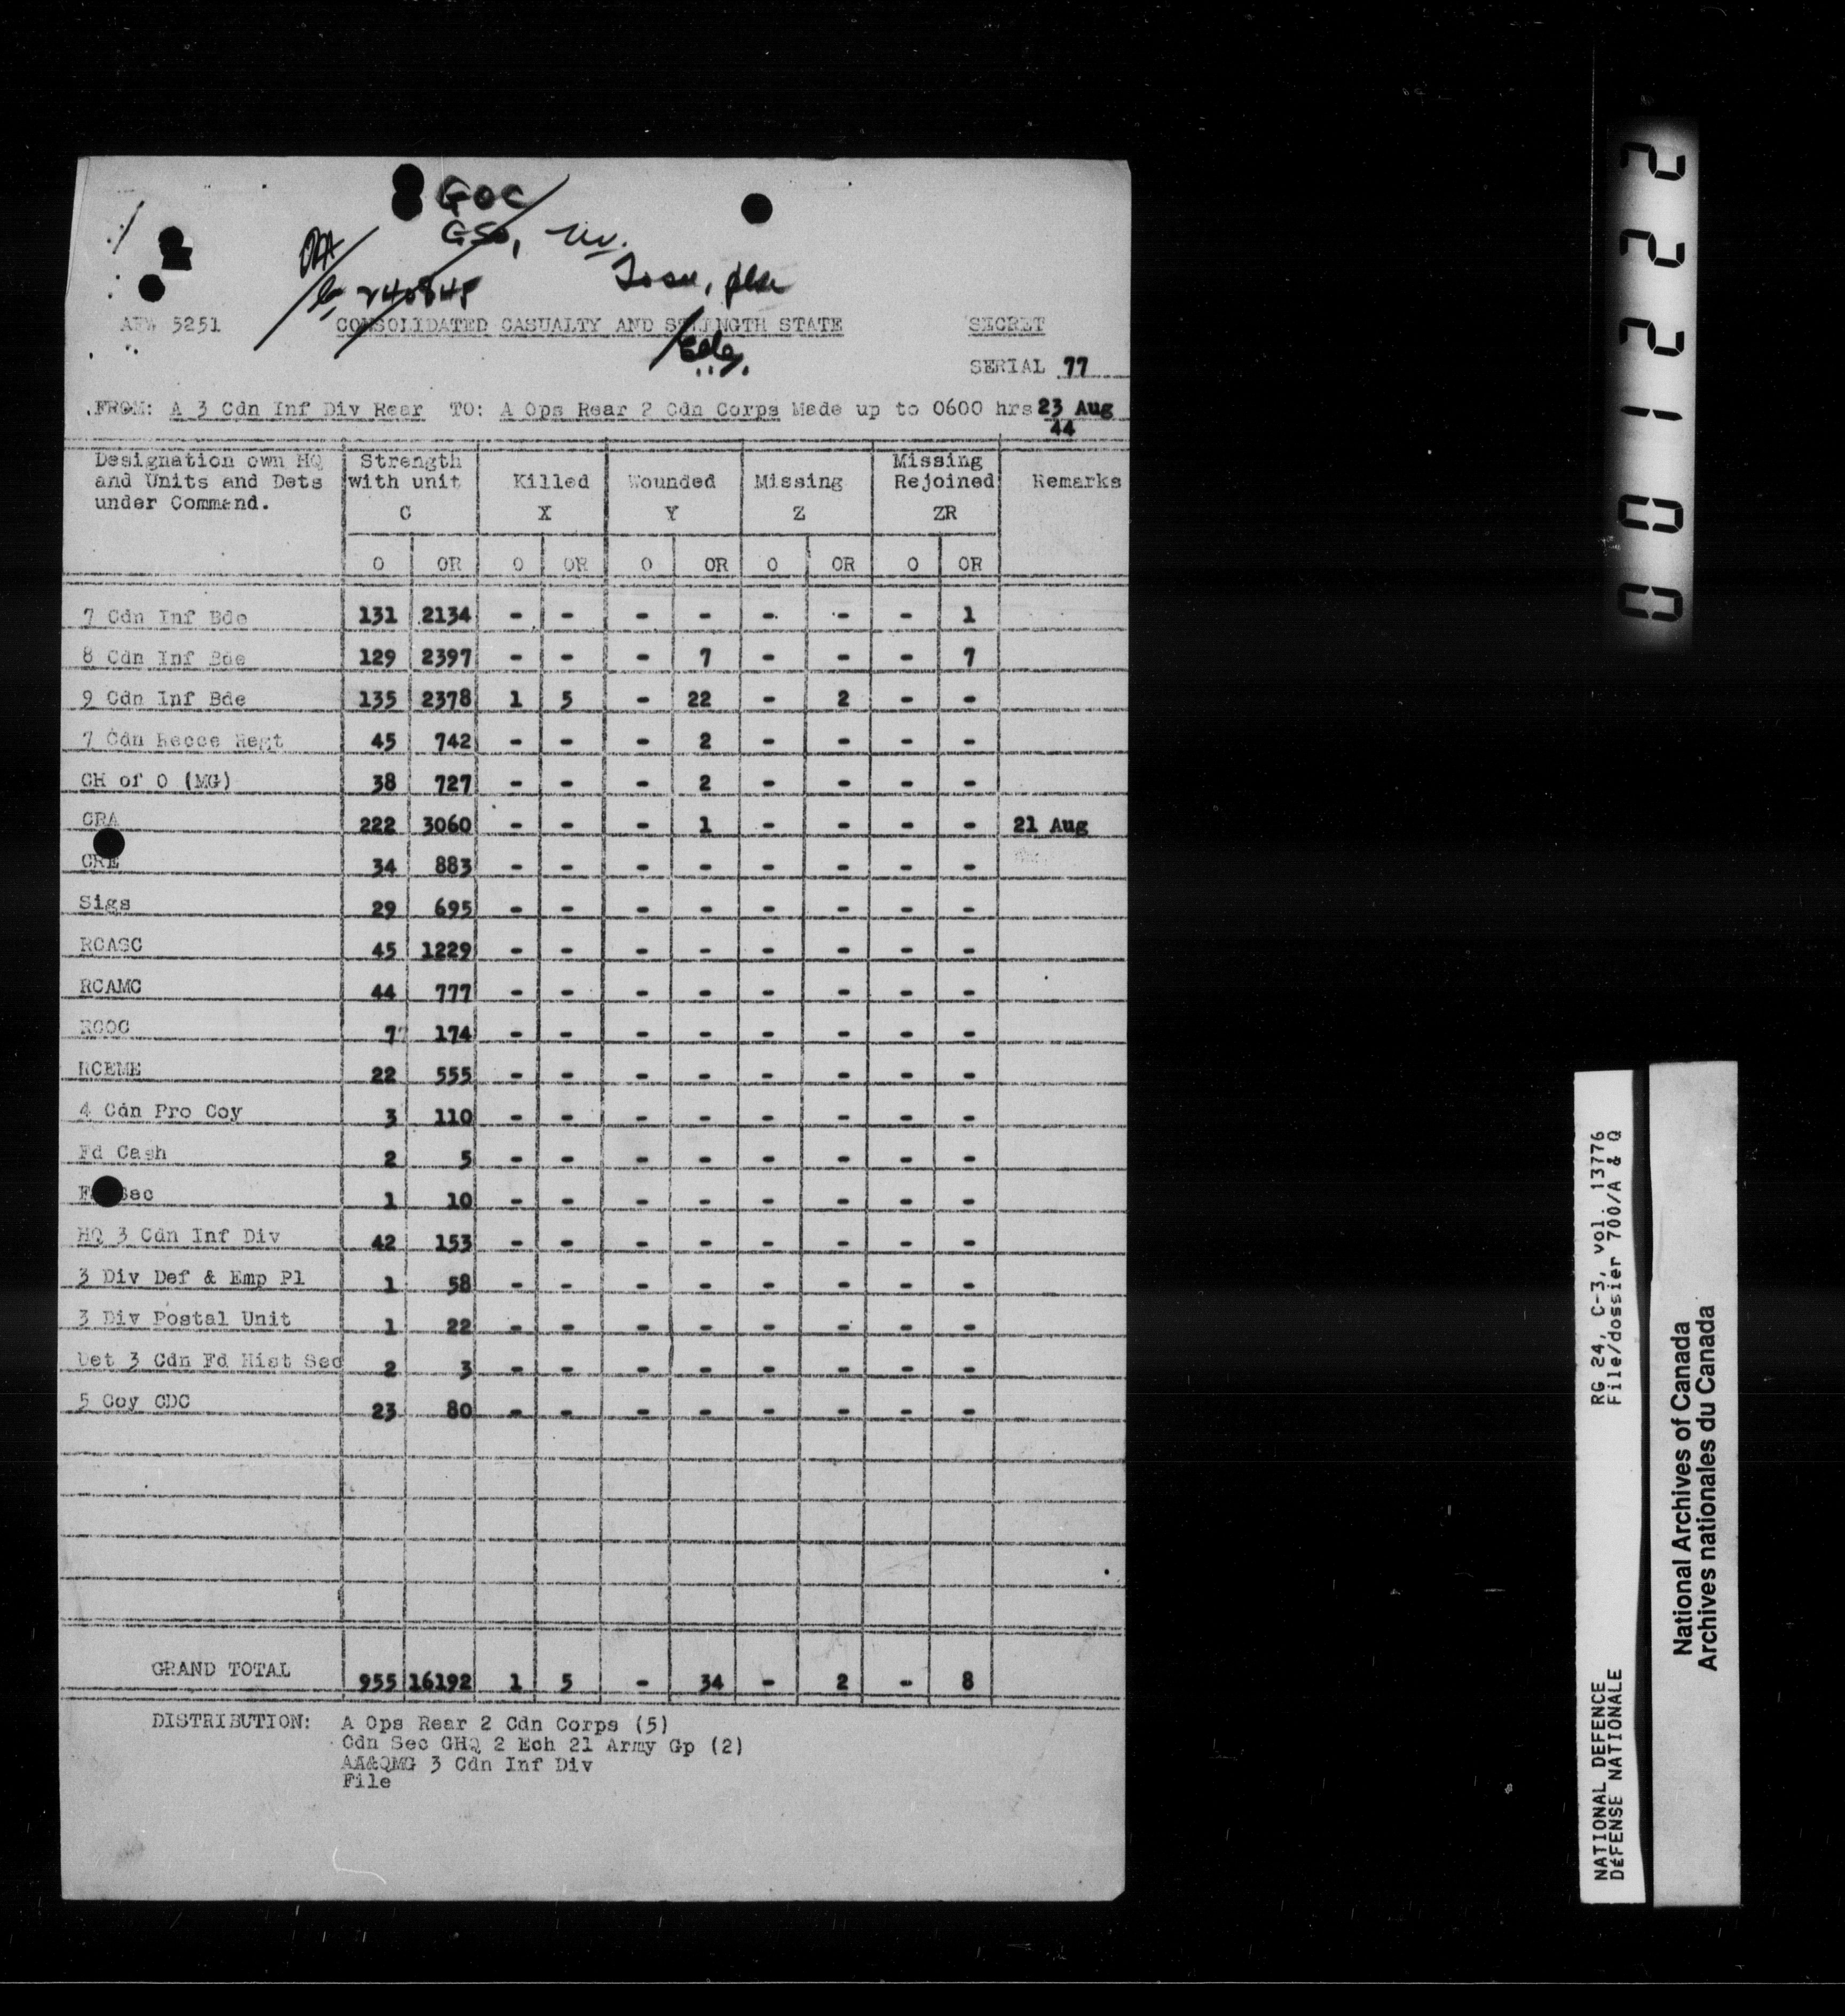 GOC
GSO,
240845
To see, plse
AFW 5251 CONSOLIDATED CASUALTY AND STRENGTH STATE SECRET
SERIAL 77
FROM: A 3 Cdn Inf Div Rear TO: A Ops Rear 2 Cdn Corps Made up to 0600 hrs 23 Aug
44
Designation own HQ and Units and Dets under Command. Strength with unit C Killed X Wounded Y Missing Z Missing Rejoined ZR Remarks
O OR O OR O OR O OR O OR
7 Cdn Inf Bde 131 2134 - - - - - - - 1
8 Cdn Inf Bde 129 2397 - - - 7 - - - 7
9 Cdn Inf Bde 135 2378 1 5 - 22 - 2 - -
7 Cdn Recce Regt 45 742 - - - 2 - - - -
CH of O (MG) 38 727 - - - 2 - - - -
CRA 222 3060 - - - 1 - - - - 21 Aug
CRE 34 883 - - - - - - - -
Sigs 29 695 - - - - - - - -
RCASC 45 1229 - - - - - - - -
RCAMC 44 777 - - - - - - - -
RCOC 7 174 - - - - - - - -
RCEME 22 555 - - - - - - - -
4 Cdn Pro Coy 3 110 - - - - - - - -
Fd Cash 2 5 - - - - - - - -
Sec 1 10 - - - - - - - -
HQ 3 Cdn Inf Div 42 153 - - - - - - - -
3 Div Def & Emp Pl 1 58 - - - - - - - -
3 Div Postal Unit 1 22 - - - - - - - -
Det 3 Cdn Fd Hist Sec 2 3 - - - - - - - -
5 Coy CDC 23 80 - - - - - - - -
GRAND TOTAL 955 16192 1 5 - 34 - 2 - 8
DISTRIBUTION: A Ops Rear 2 Cdn Corps (5)
Cdn Sec GHQ 2 Ech 21 Army Gp (2)
AA&QMG 3 Cdn Inf Div
File
001222
NATIONAL DEFENCE RG 24, C-3, vol. 13776
DéFENSE NATIONALE File/dossier 700/A & Q
National Archives of Canada
Archives nationales du Canada